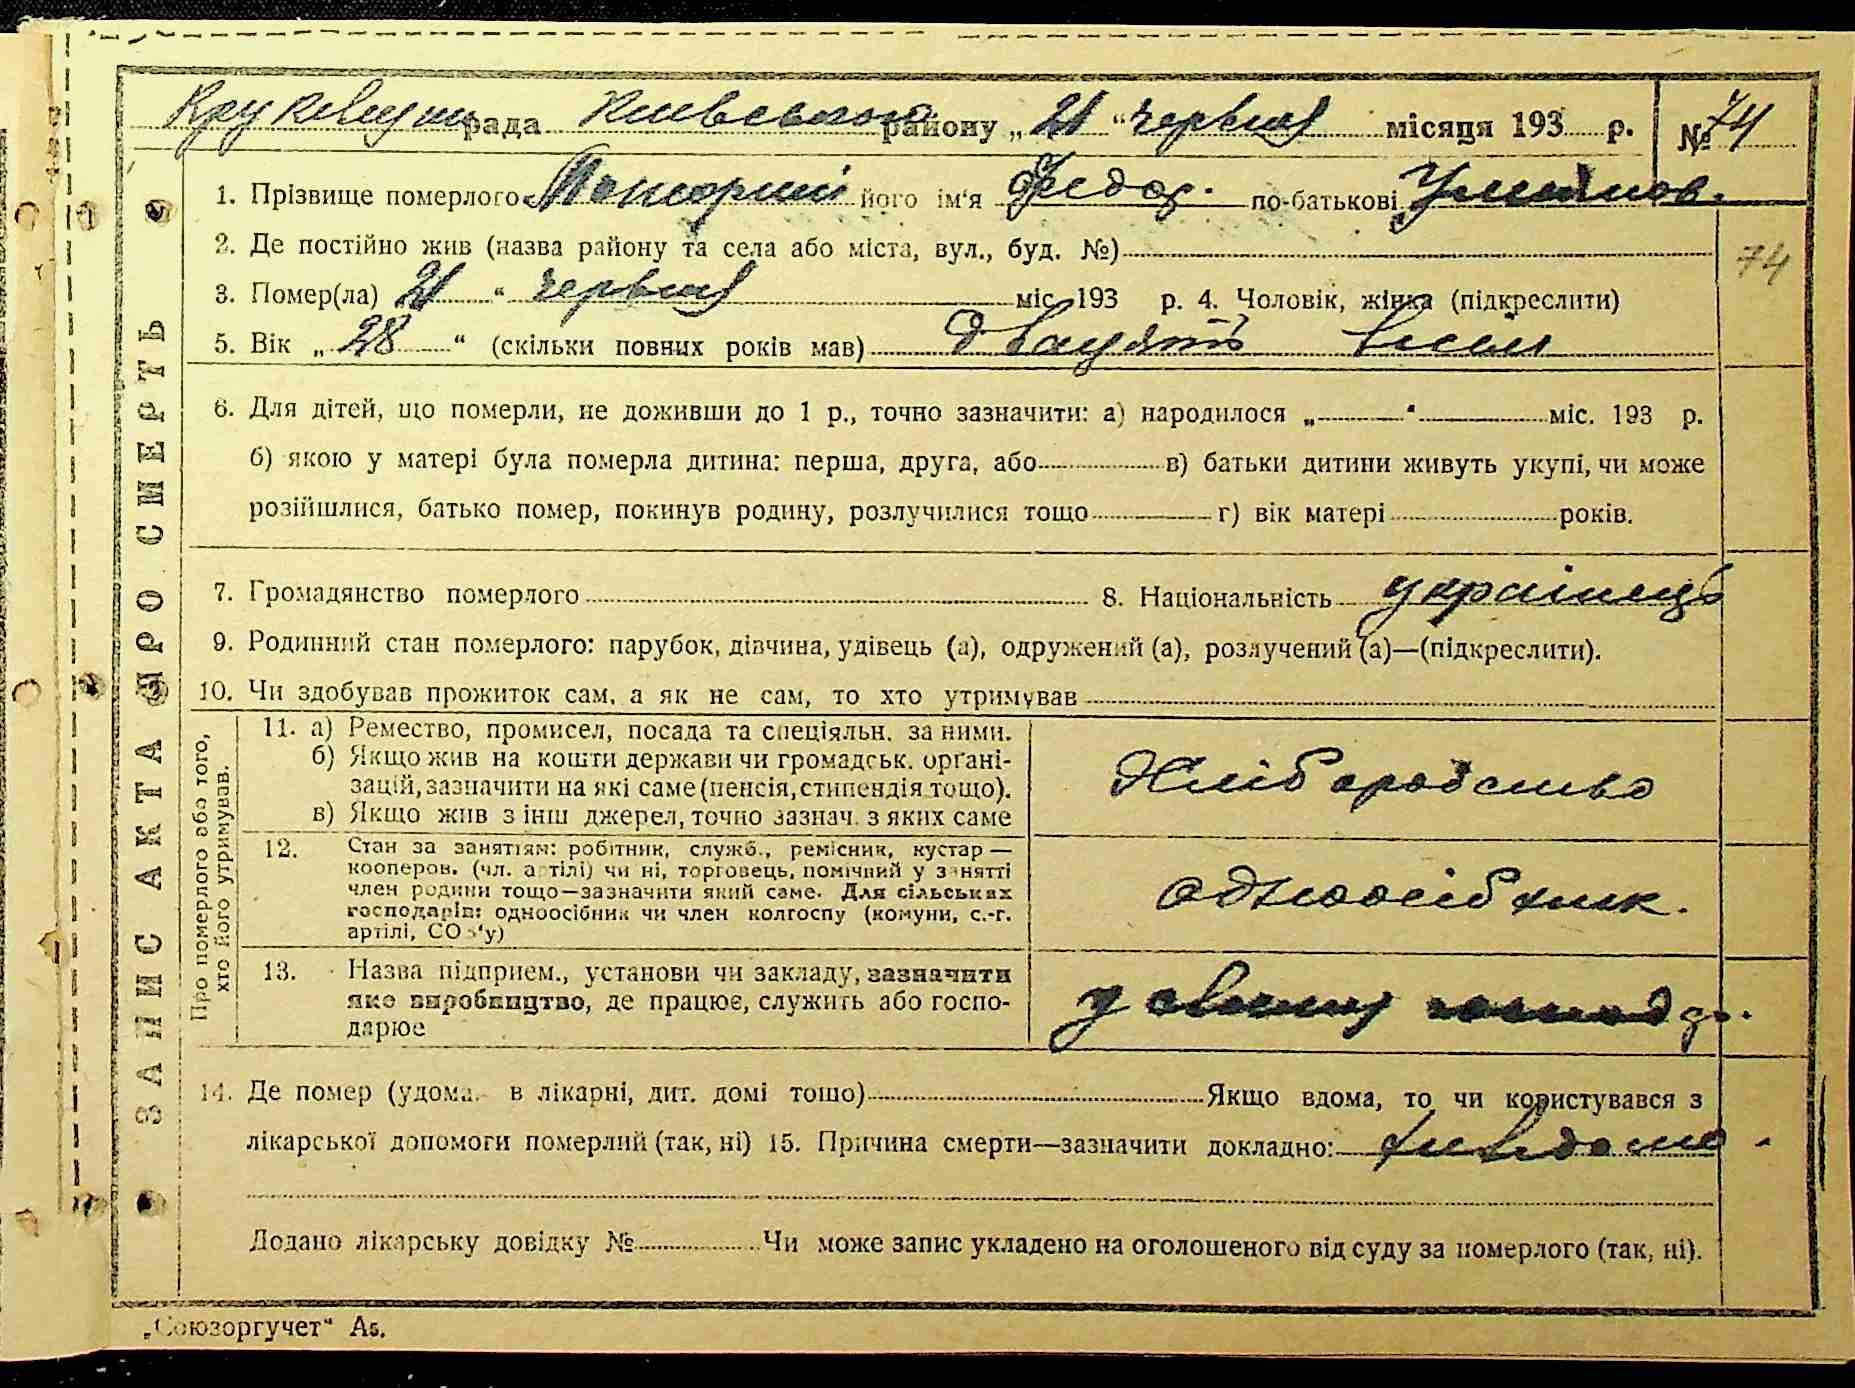 рада Київського району „21“ червня місяця 193 р. № 74
1. Прізвище померлого його ім'я Федор. по-батькові
2. Де постійно жив (назва району та села або міста, вул., буд. №)
74
3. Помер(ла) 21 “ червня міс 193 р. 4. Чоловік, жінка (підкреслити)
5. Вік „ 28 “ (скільки повних років мав) двадцять вісім
6. Для дітей, що померли, не доживши до 1 р., точно зазначити: а) народилося „ “ міс. 193 р.
б) якою у матері була померла дитина: перша, друга, або в) батьки дитини живуть укупі, чи може
розійшлися, батько помер, покинув родину, розлучилися тощо г) вік матері років.
7. Громадянство померлого 8. Національність українець
9. Родинний стан померлого: парубок, дівчина, удівець (а), одружений (а), розлучений (а)—(підкреслити).
10. Чи здобував прожиток сам, а як не сам, то хто утримував
ЗАПИС АКТА ПРО СМЕРТЬ
Про померлого або того,
хто його утримував.
11. а) Ремество, промисел, посада та спеціяльн. за ними.
б) Якщо жив на кошти держави чи громадськ. органі-
зацій, зазначити на які саме (пенсія, стипендія тощо).
в) Якщо жив з інш джерел, точно зазнач. з яких саме
Хліборобство
12. Стан за заняттям: робітник, служб., ремісник, кустар —
кооперов. (чл. артілі) чи ні, торговець, помічний у занятті
член родини тощо—зазначити який саме. Для сільських
господарів: одноосібник чи член колгоспу (комуни, с.-г.
артілі, СОЗ'у)
одноосібник.
13. Назва підприєм., установи чи закладу, зазначити
яке виробництво, де працює, служить або госпо-
дарює
у своєму господ.
14. Де помер (удома, в лікарні, дит. домі тощо) Якщо вдома, то чи користувався з
лікарської допомоги померлий (так, ні) 15. Причина смерти—зазначити докладно:
Додано лікарську довідку № Чи може запис укладено на оголошеного від суду за померлого (так, ні).
„Союзоргучет“ А5.